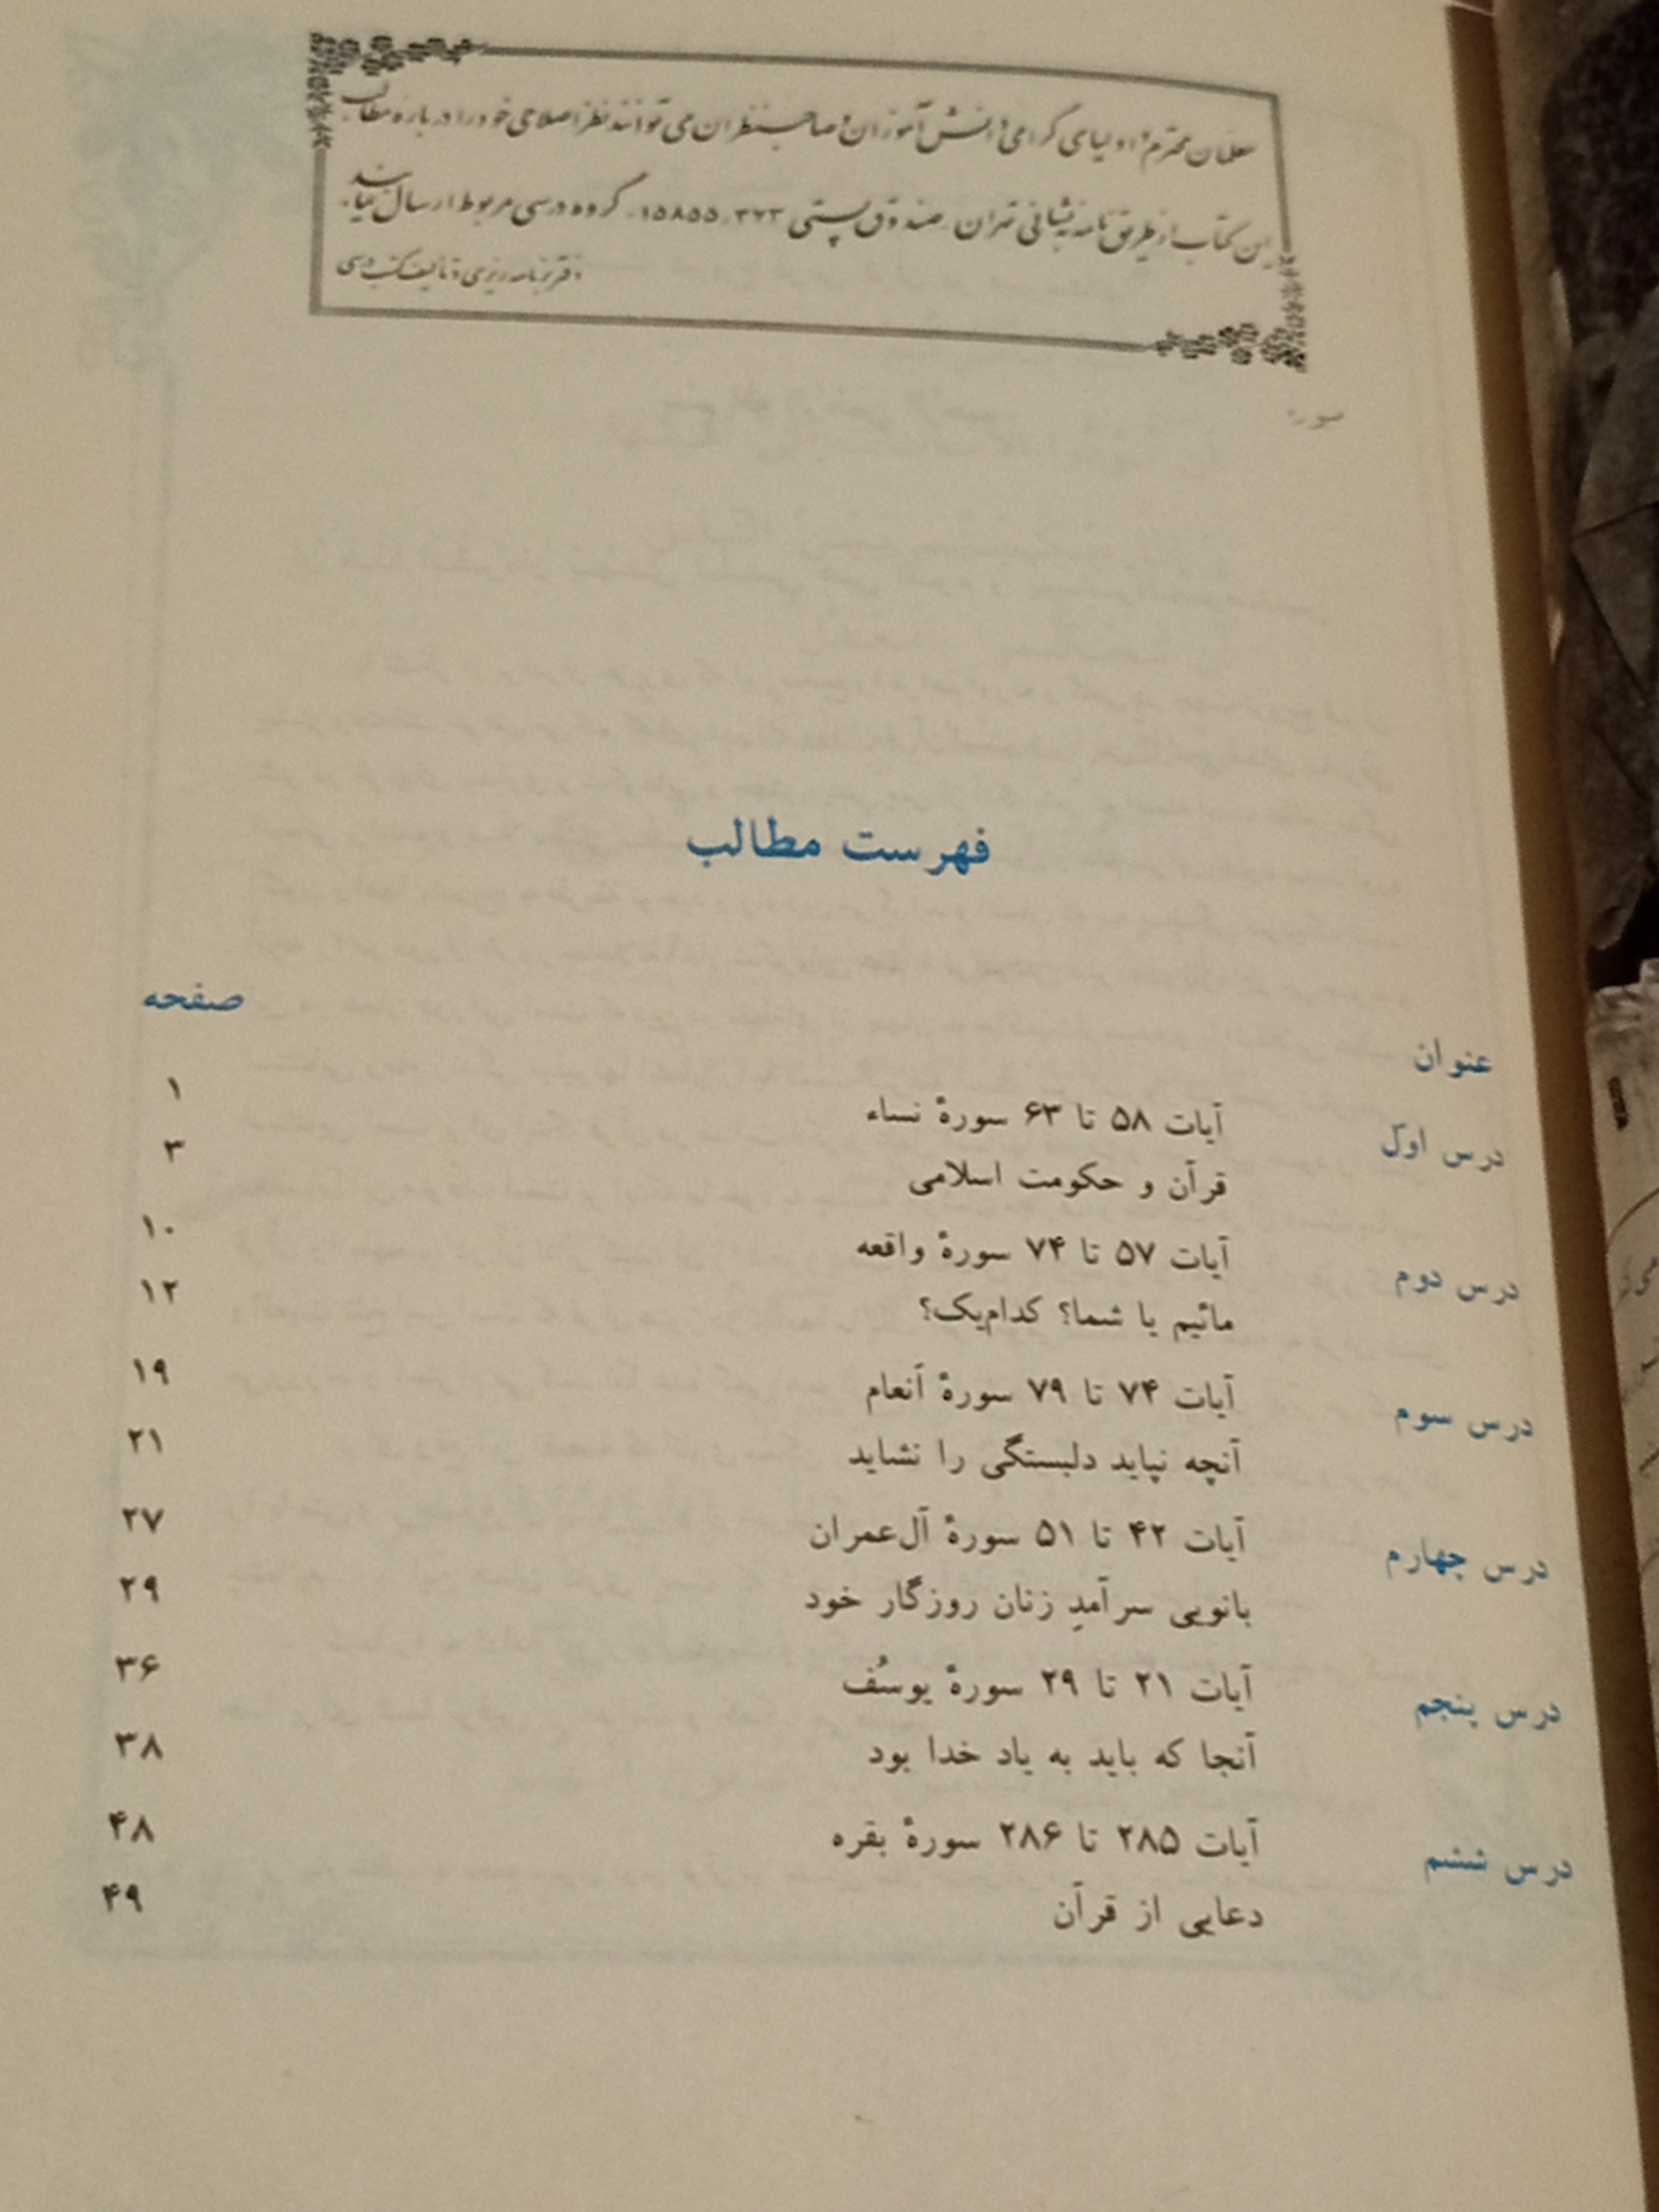 معلمان محترم، اولیای گرامی دانش‌آموزان و صاحب‌نظران می‌توانند نظر اصلاحی خود را درباره مطالب
این کتاب از طریق نامه به نشانی تهران ـ صندوق پستی ۱۵۸۵۵/۳۶۳ ـ گروه درسی مربوط ارسال نمایند.
دفتر برنامه‌ریزی و تألیف کتب درسی
فهرست مطالب
عنوان صفحه
درس اوّل آیات ۵۸ تا ۶۳ سورهٔ نساء ۱
قرآن و حکومت اسلامی ۳
درس دوم آیات ۵۷ تا ۷۴ سورهٔ واقعه ۱۰
مائیم یا شما؟ کدام‌یک؟ ۱۲
درس سوم آیات ۷۴ تا ۷۹ سورهٔ اَنعام ۱۹
آنچه نپاید دلبستگی را نشاید ۲۱
درس چهارم آیات ۴۲ تا ۵۱ سورهٔ آل‌عمران ۲۷
بانویی سرآمدِ زنان روزگار خود ۲۹
درس پنجم آیات ۲۱ تا ۲۹ سورهٔ یوسُف ۳۶
آنجا که باید به یاد خدا بود ۳۸
درس ششم آیات ۲۸۵ تا ۲۸۶ سورهٔ بقره ۴۸
دعایی از قرآن ۴۹